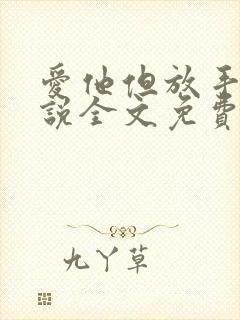 愛他但放手
説全文免費
九丫草